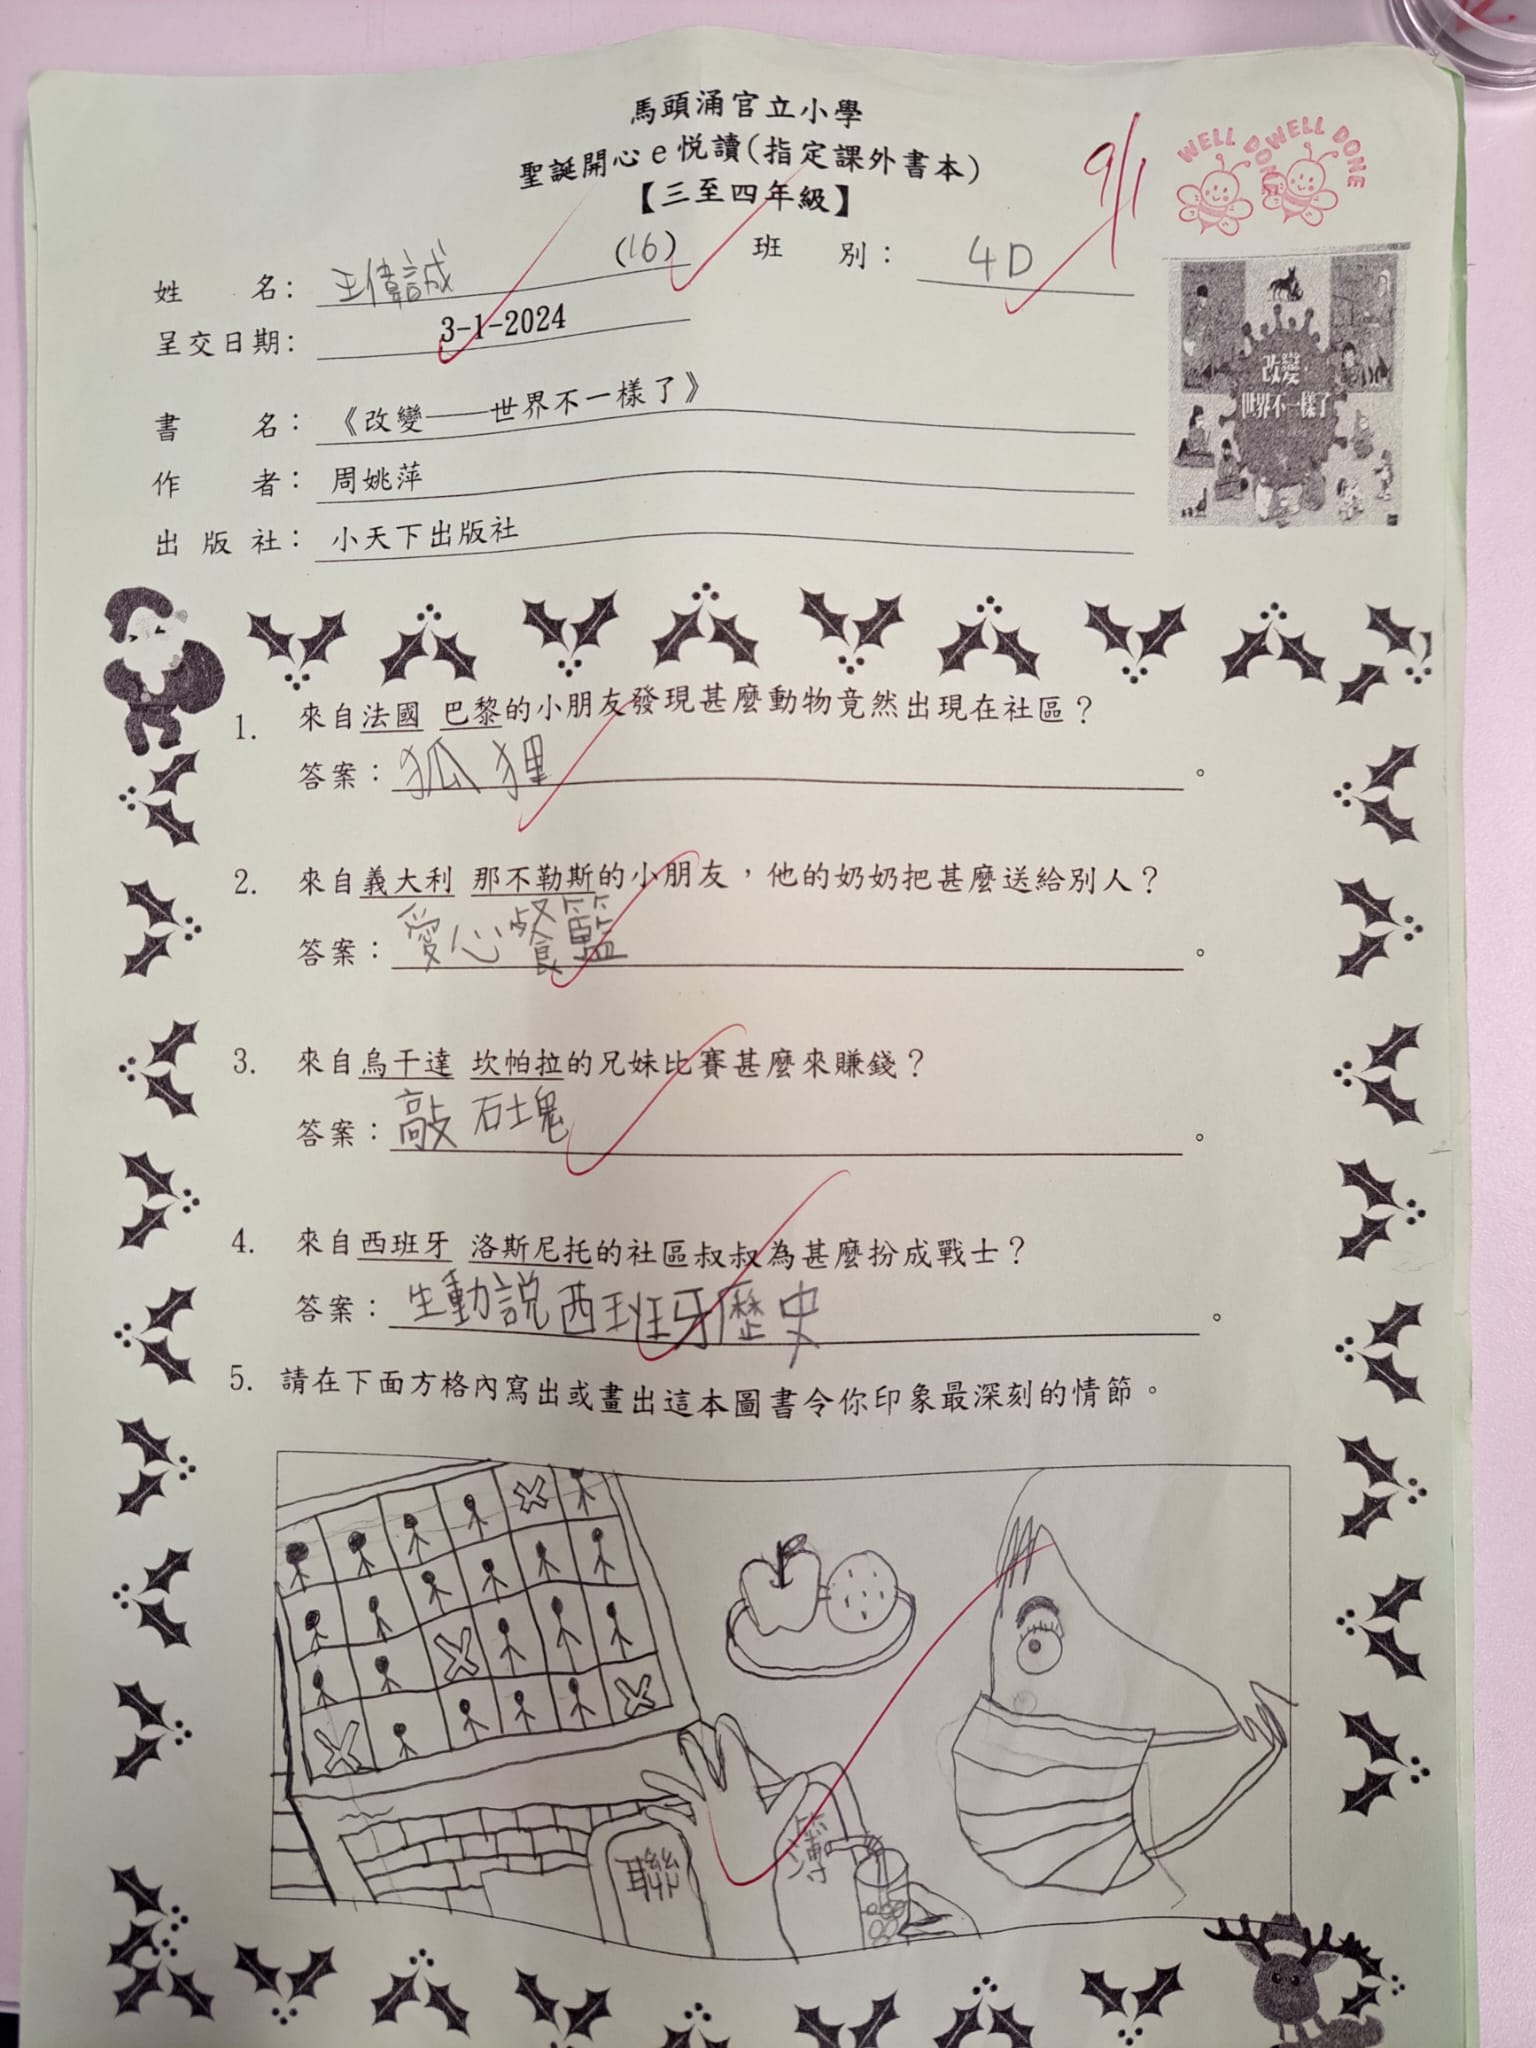 馬頭涌官立小學
聖誕開心e悅讀(指定課外書本)
【三至四年級】
9/1
WELL DONE WELL DONE
姓 名: 王偉誠 (16) 班 別: 4D
呈交日期: 3-1-2024
書 名: 《改變——世界不一樣了》
作 者: 周姚萍
出 版 社: 小天下出版社
改變
世界不一樣了
1. 來自法國 巴黎的小朋友發現甚麼動物竟然出現在社區?
答案:狐狸。
2. 來自義大利 那不勒斯的小朋友,他的奶奶把甚麼送給別人?
答案:愛心餐籃。
3. 來自烏干達 坎帕拉的兄妹比賽甚麼來賺錢?
答案:敲石塊。
4. 來自西班牙 洛斯尼托的社區叔叔為甚麼扮成戰士?
答案:生動說西班牙歷史。
5. 請在下面方格內寫出或畫出這本圖書令你印象最深刻的情節。
聯 簿